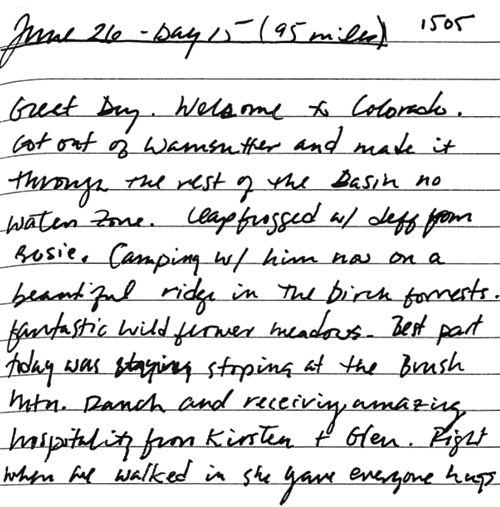 June 26 - Day 15 (95 miles) 1505
Great Day. Welcome to Colorado.
Got out of Wamsutter and made it
through the rest of the Basin no
water zone. Leapfrogged w/ Jeff from
Bosie. Camping w/ him now on a
beautiful ridge in the birch forrests.
fantastic wild flower meadows. Best part
today was staying stoping at the Brush
Mtn. Ranch and receiving amazing
hospitality from Kirsten + Glen. Right
when we walked in she gave everyone hugs